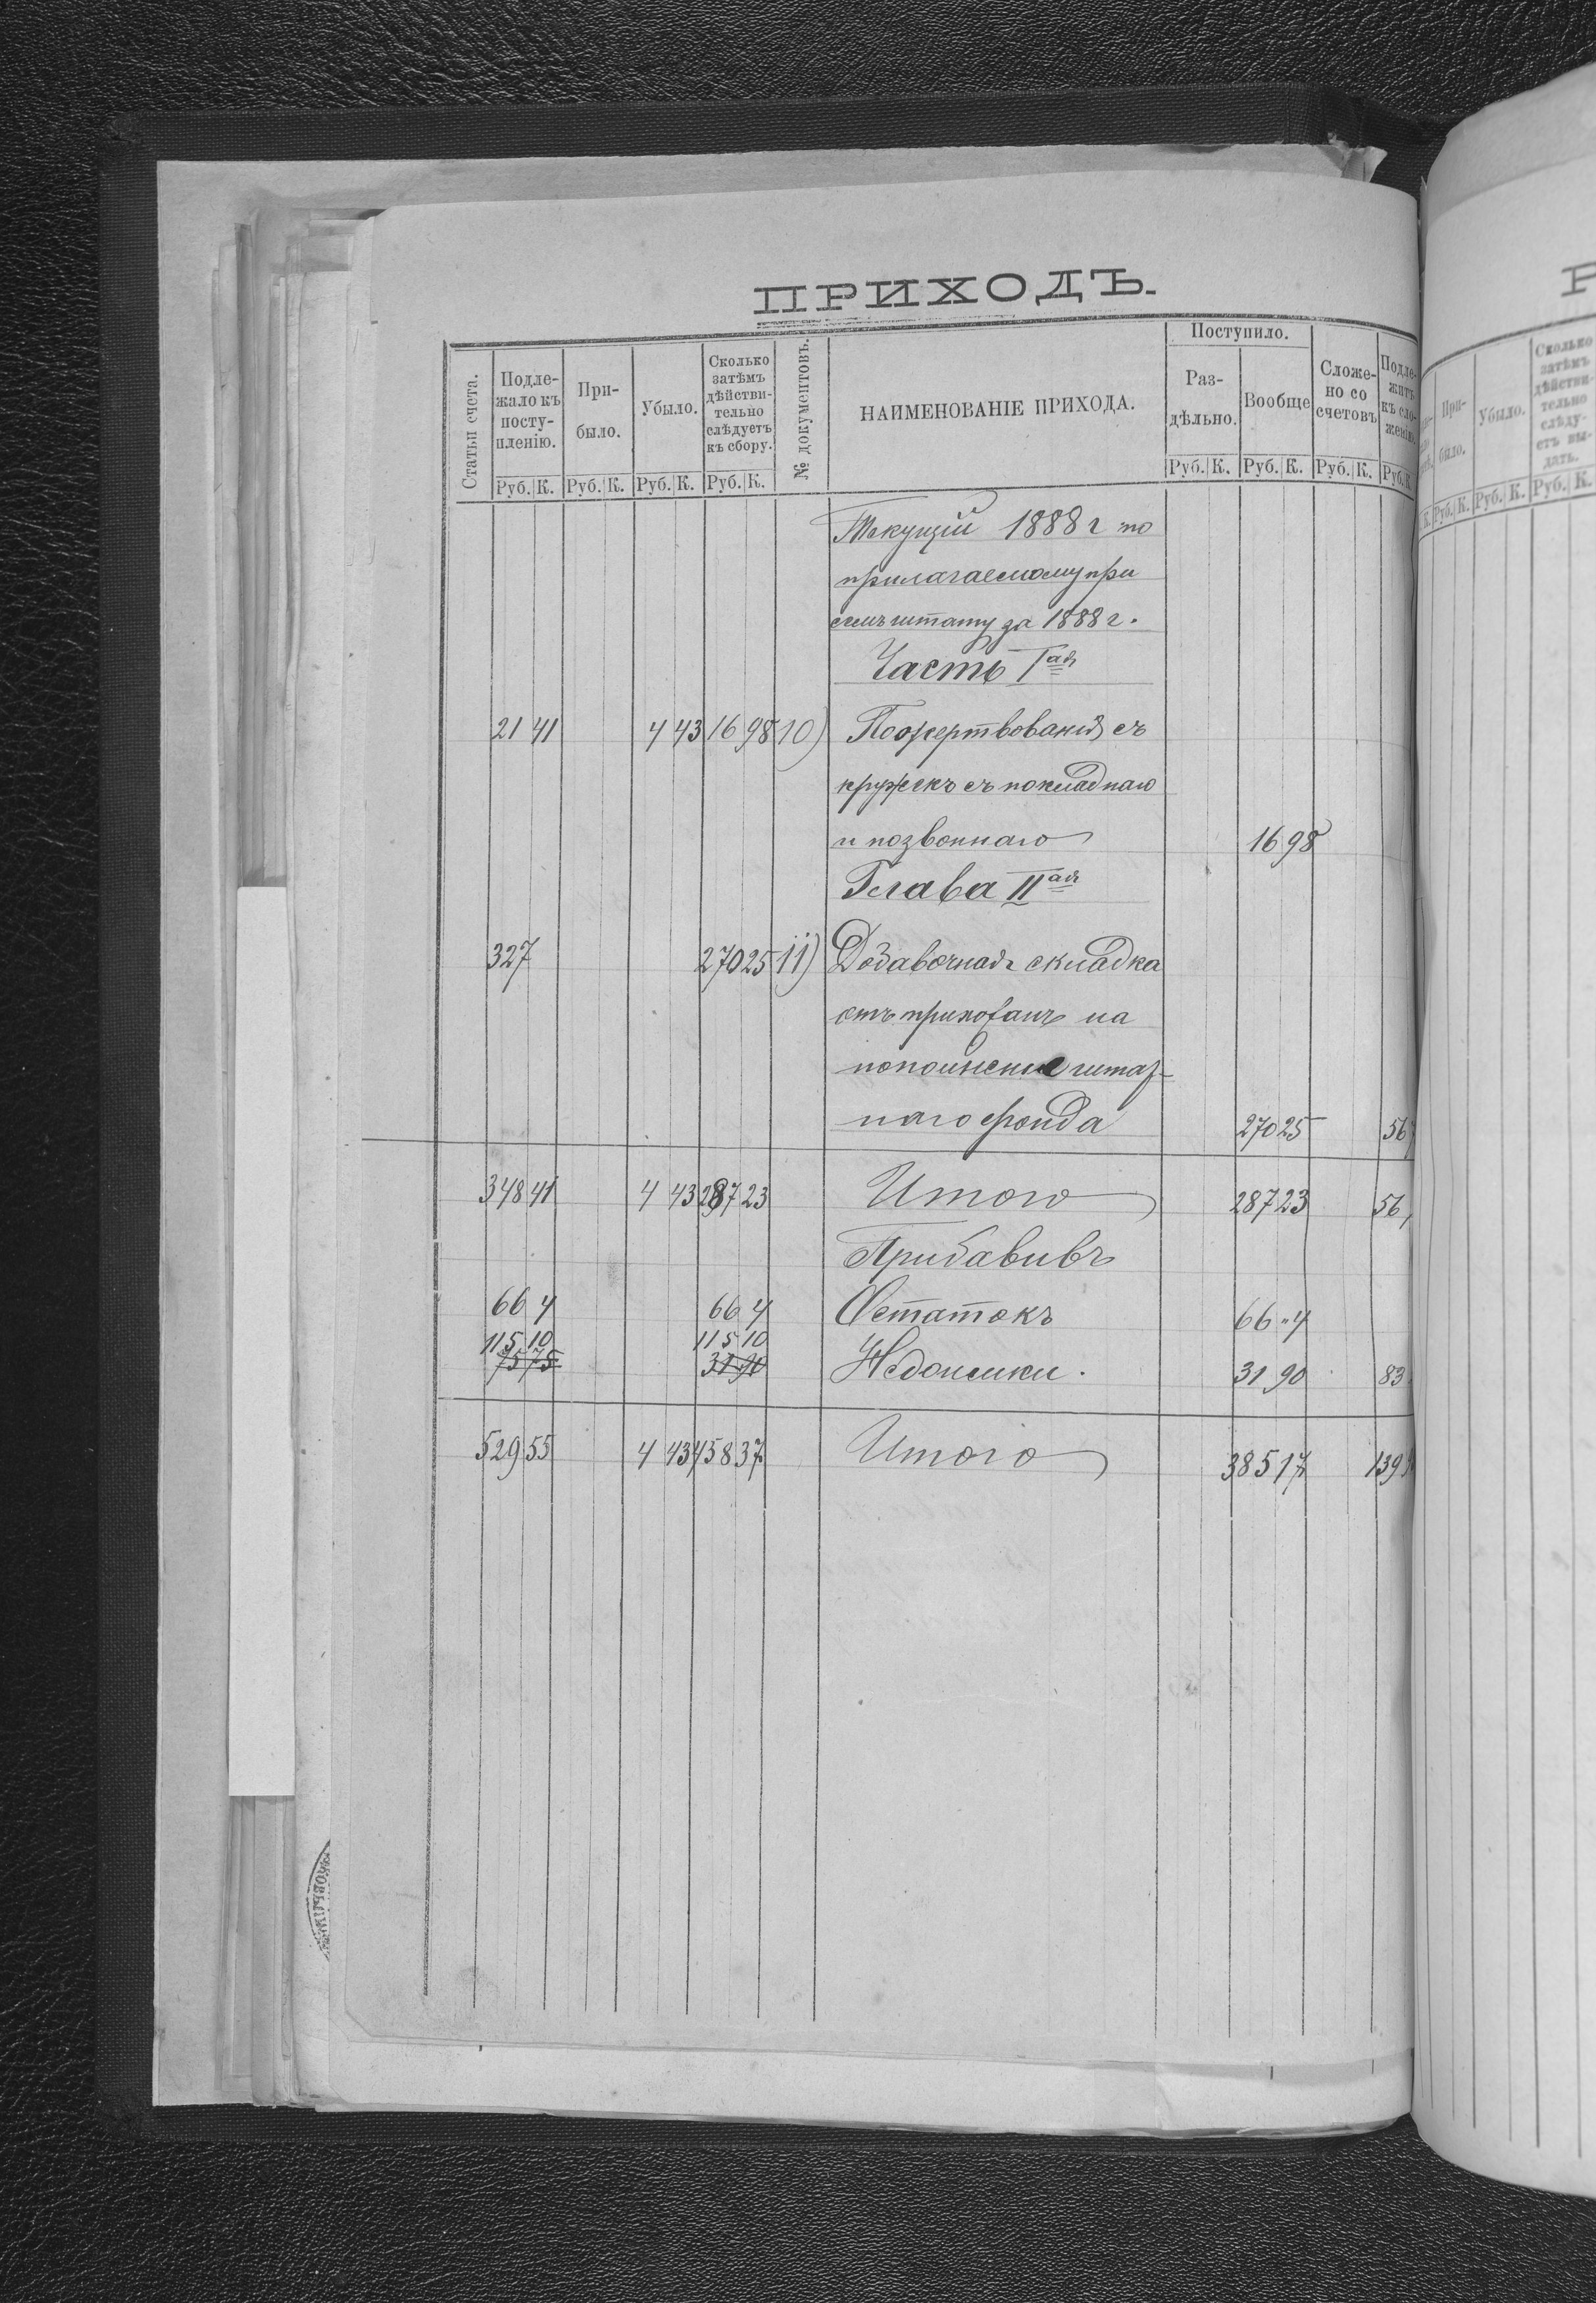 ПРИХОДЪ.
Статьи счета.
Подле-
жало къ
посту-
пленію.
При-
было.
Убыло.
Сколько
затѣмъ
дѣйстви-
тельно
слѣдуетъ
къ сбору.
№ документовъ.
НАИМЕНОВАНІЕ ПРИХОДА.
Поступило.
Раз-
дѣльно.
Вообще
Сложе-
но со
счетовъ
Подле-
житъ
къ сло-
женію.
Руб. К. Руб. К. Руб. К. Руб. К. Руб. К. Руб. К. Руб. К. Руб. К.
Текущій 1888 г по
прилагаемому при
семъ штату за 1888 г.
Часть Iая
21 41 4 43 16 98 10) Пожертвованія съ
кружекъ съ покладнаго
и позвоннаго 16 98
Глава IIая
327 270 25 11) Добавочная складка
отъ прихожанъ на
пополненіе штат-
наго фонда 270 25 56
348 41 4 43 287 23 Итого 287 23 56
Прибавивъ
66 4 66 4 Остатокъ 66 "4
115 10 115 10
75 75 31 90 Недоимки. 31 90 83
529 55 4 43 458 37 Итого 385 17 139
При-
было.
Убыло.
Сколько
затѣмъ
дѣйстви-
тельно
слѣду-
етъ вы-
дать.
К. Руб. К. Руб. К. Руб. К.